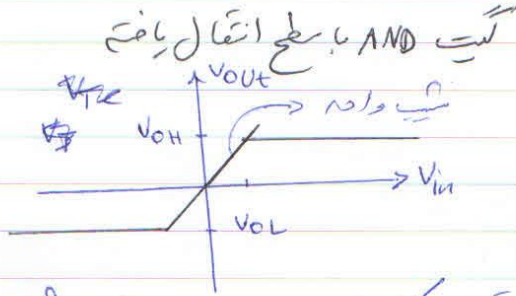 گیت AND با سطح انتقال یافته
VOUt
شیب واحد
VOH
Vin
VOL